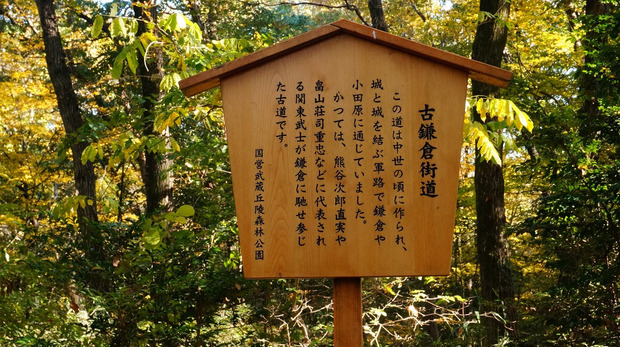 古鎌倉街道
この道は中世の頃に作られ、
城と城を結ぶ軍路で鎌倉や
小田原に通じていました。
かつては、熊谷次郎直実や
畠山荘司重忠などに代表され
る関東武士が鎌倉に馳せ参じ
た古道です。
国営武蔵丘陵森林公園